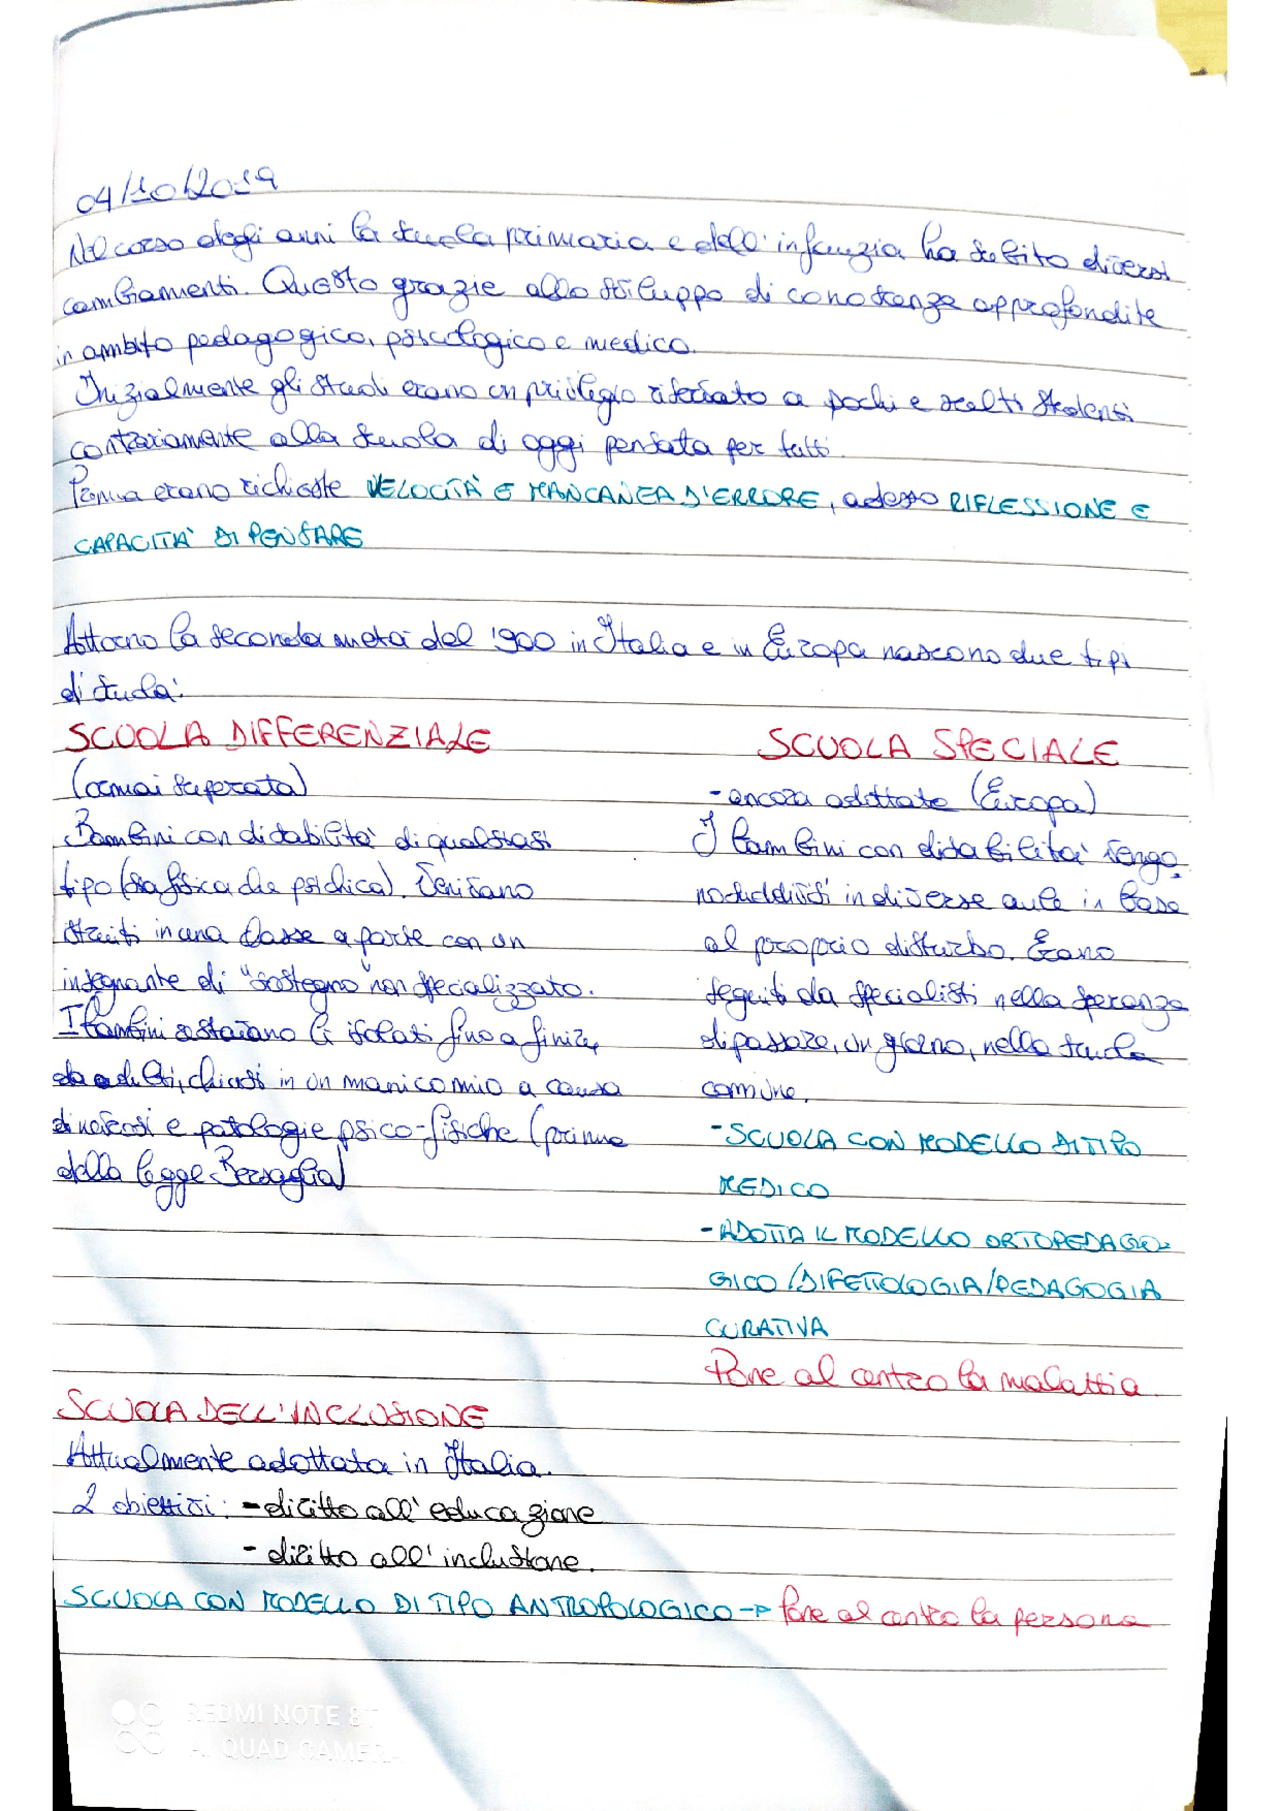 04/10/2019
Nel corso degli anni la scuola primaria e dell'infanzia ha subito diversi
cambiamenti. Questo grazie allo sviluppo di conoscenze approfondite
in ambito pedagogico, psicologico e medico.
Inizialmente gli studi erano un privilegio riservato a pochi e scelti studenti
contrariamente alla scuola di oggi pensata per tutti.
Prima erano richieste VELOCITÀ E MANCANZA D'ERRORE, adesso RIFLESSIONE E
CAPACITA' DI PENSARE
Attorno la seconda metà del '900 in Italia e in Europa nascono due tipi
di scuola:
SCUOLA DIFFERENZIALE
(ormai superata)
Bambini con disabilità di qualsiasi
tipo (sia fisica che psichica). Venivano
istruiti in una classe a parte con un
insegnante di "sostegno" non specializzato.
I bambini restavano lì isolati fino a finire,
da adulti, chiusi in un manicomio a causa
di nevrosi e patologie psico-fisiche (prima
della legge Bersaglia)
SCUOLA SPECIALE
- ancora adottate (Europa)
I bambini con disabilità vengo
no suddivisi in diverse aule in base
al proprio disturbo. Erano
seguiti da specialisti nella speranza
di passare, un giorno, nella scuola
comune.
- SCUOLA CON MODELLO DI TIPO
MEDICO
- ADOTTA IL MODELLO ORTOPEDAGO-
GICO/DIFETTOLOGIA/PEDAGOGIA
CURATIVA
Pone al centro la malattia
SCUOLA DELL'INCLUSIONE
Attualmente adottata in Italia.
2 obiettivi: - diritto all'educazione
- diritto all'inclusione.
SCUOLA CON MODELLO DI TIPO ANTROPOLOGICO → Pone al centro la persona
REDMI NOTE 8T
AI QUAD CAMERA